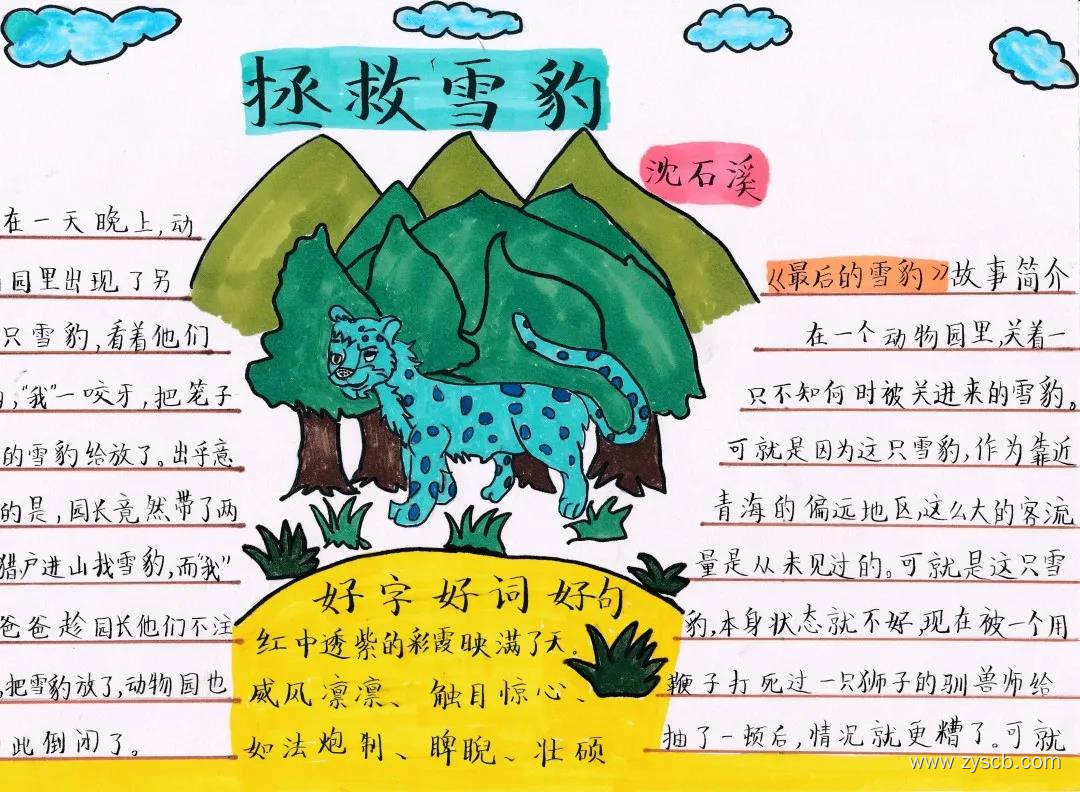 拯救雪豹
沈石溪
《最后的雪豹》故事简介
在一个动物园里,关着一
只不知何时被关进来的雪豹。
可就是因为这只雪豹,作为靠近
青海的偏远地区,这么大的客流
量是从未见过的。可就是这只雪
豹,本身状态就不好,现在被一个用
鞭子打死过一只狮子的驯兽师给
抽了一顿后,情况就更糟了。可就
在一天晚上,动
园里出现了另
只雪豹,看着他们
,“我”一咬牙,把笼子
的雪豹给放了。出乎意
的是,园长竟然带了两
猎户进山找雪豹,而“我”
爸爸趁园长他们不注
,把雪豹放了,动物园也
此倒闭了。
好字好词好句
红中透紫的彩霞映满了天。
威风凛凛、触目惊心、
如法炮制、睥睨、壮硕
www.zyscb.com